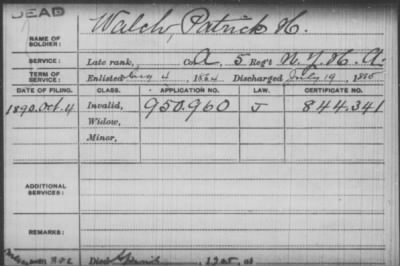 DEAD
NAME OF SOLDIER: Walch, Patrick H.
SERVICE: Late rank, Co. A, 5 Reg't N. Y. H. A.
TERM OF SERVICE: Enlisted Aug 4, 1864 Discharged July 19, 1865
DATE OF FILING. CLASS. APPLICATION NO. LAW. CERTIFICATE NO.
1890. Oct. 4 Invalid, 950.960 J 844.341
Widow,
Minor,
ADDITIONAL SERVICES:
REMARKS:
Died April, 1905, at